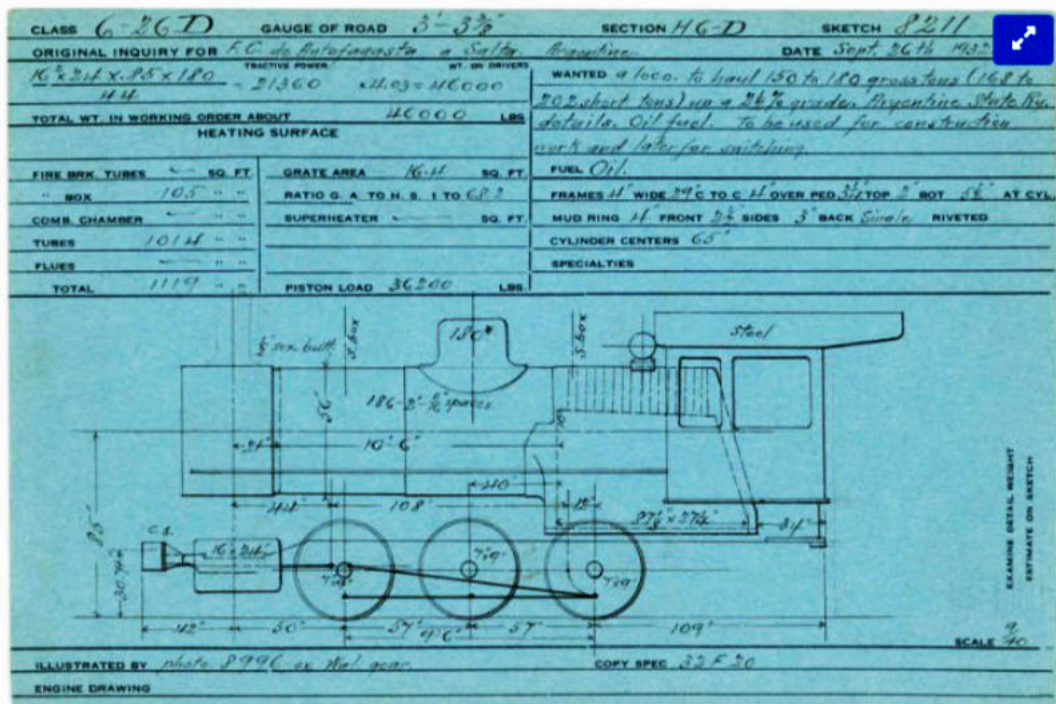 CLASS 6-26D GAUGE OF ROAD 3'-3⅜" SECTION H6-D SKETCH 8211
ORIGINAL INQUIRY FOR F.C. de Antofagasta a Salta, Argentine. DATE Sept. 26th 1932
TRACTIVE POWER WT. ON DRIVERS
16 x 24 x .85 x 180
44
21360 x 4.03 = 46000
TOTAL WT. IN WORKING ORDER ABOUT 46000 LBS
WANTED a loco. to haul 150 to 180 gross tons (168 to
202 short tons) up a 2½% grade. Argentine State Ry.
details. Oil fuel. To be used for construction
work and later for switching.
HEATING SURFACE
FIRE BRK. TUBES — SQ. FT.
" BOX 105 " "
COMB. CHAMBER — " "
TUBES 1014 " "
FLUES — " "
TOTAL 1119 " "
GRATE AREA 16.4 SQ. FT.
RATIO G. A. TO H. S. 1 TO 68.2
SUPERHEATER — SQ. FT.
PISTON LOAD 36200 LBS.
FUEL Oil.
FRAMES 4" WIDE 29" C TO C 4" OVER PED TOP 2" BOT AT CYL.
MUD RING 4" FRONT 2½" SIDES 3" BACK Single RIVETED
CYLINDER CENTERS 65"
SPECIALTIES
S.box
180#
S.box
Steel
sex. butt
56"
186-2"- spaces
21"
10'-6"
40"
44"
108"
87⅛" x 27¼"
34"
85"
C.S.
16 x 24"
7"x9"
7"x9"
42"
50"
57"
9'6"
57"
109"
EXAMINE DETAIL WEIGHT
ESTIMATE ON SKETCH
SCALE 9/40
ILLUSTRATED BY photo 8996 ex Wal. gear. COPY SPEC 32F20
ENGINE DRAWING